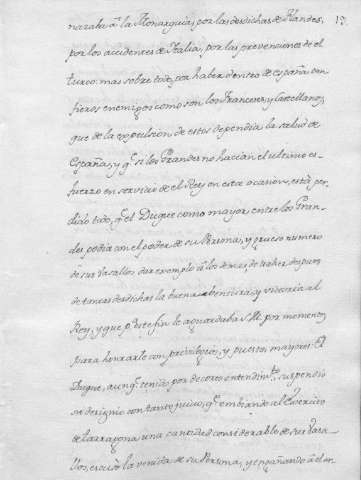 nazaba á la Monarquia, por las desdichas de Flandes, 17.
por los accidentes de Italia, por las prevenciones de el
turco: mas sobre todo, por haber dentro de españa tan
fieros enemigos como son los Franceses, y Castellanos,
que de la expulsion de estos dependia la salud de
España, y q.e si los Grandes no hacian el ultimo es-
fuerzo en servicio de el Rey en esta ocasion, está per-
dido todo, q.e el Duque como mayor entre los Gran-
des podia con el poder de su Persona, y grueso numero
de sus vasallos dar exemplo á los demas, de traher despues
de tantas desdichas la buena y victoria al
Rey, y que p.a este fin le aguardaba S.M. por momentos
para honrarle con privilegios, y puestos mayores: El
Duque, aunq.e tenido por de corto entendim.to, suspendió
su designio con tanto juicio, q.e embiando al Exercito
de tarragona una cantidad considerable de sus Vasa-
llos, escusó la venida de su Persona, y engañando á el en